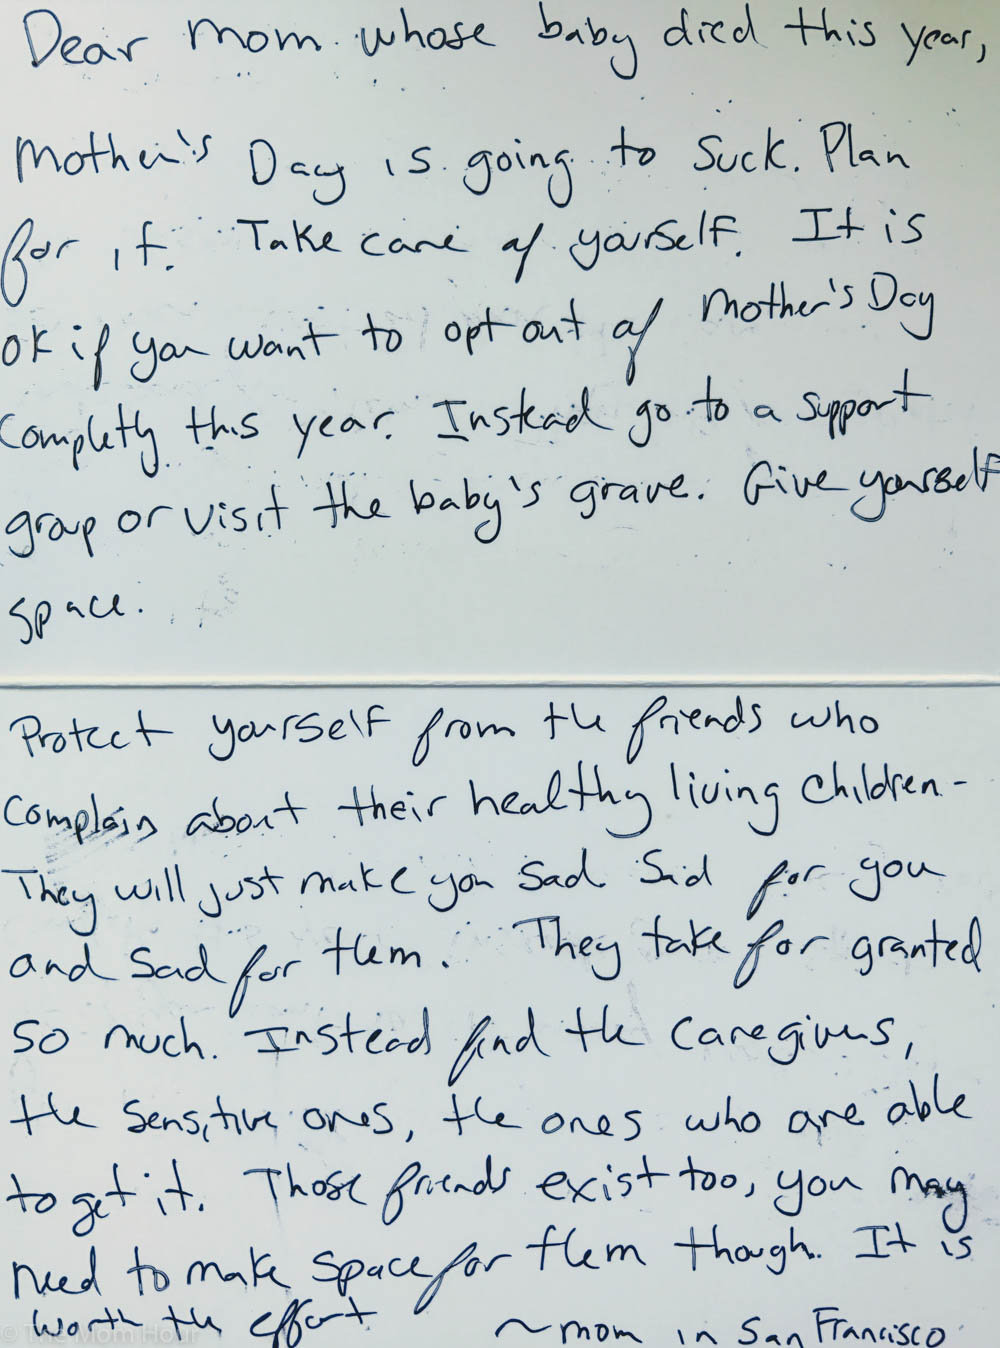 Dear mom whose baby died this year,
Mother's Day is going to suck. Plan
for it. Take care of yourself. It is
ok if you want to opt out of Mother's Day
completly this year. Instead go to a support
group or visit the baby's grave. Give yourself
space.
Protect yourself from the friends who
complain about their healthy living children -
They will just make you sad. Sad for you
and sad for them. They take for granted
so much. Instead find the caregivers,
the sensitive ones, the ones who are able
to get it. Those friends exist too, you may
need to make space for them though. It is
worth the effort
~ mom in San Francisco
© The Mom Hour